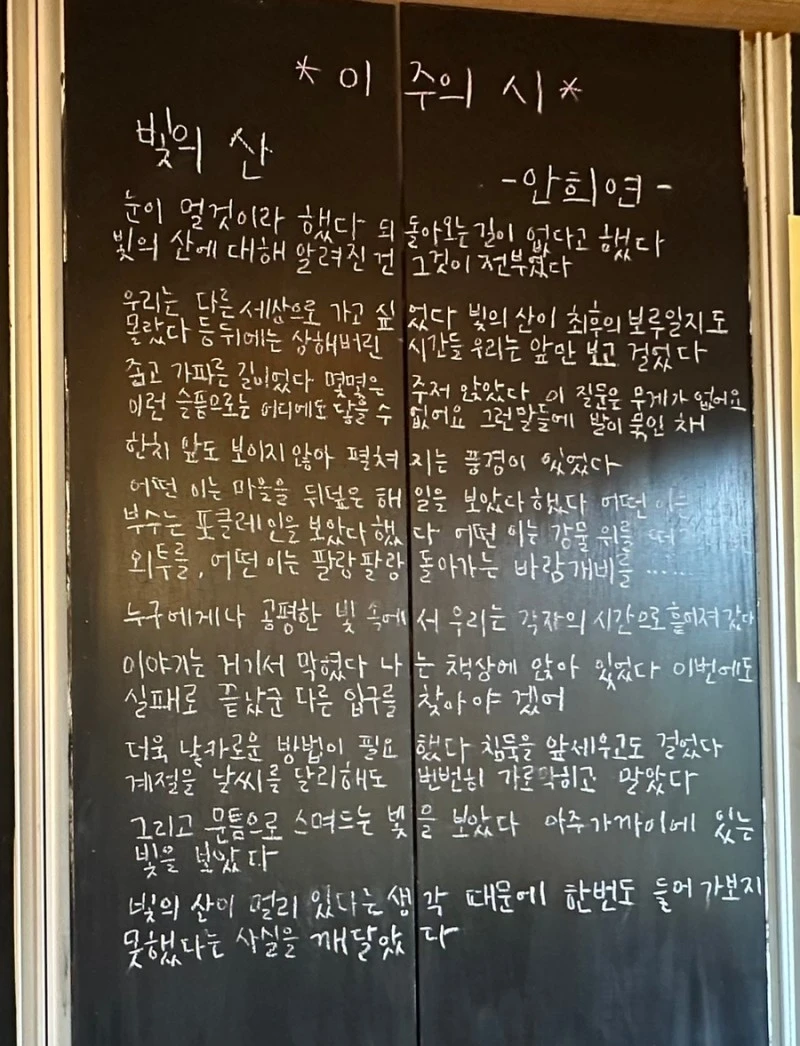 * 이 주의 시 *
빛의 산
- 안희연 -
눈이 멀것이라 했다 되돌아오는 길이 없다고 했다
빛의 산에 대해 알려진 건 그것이 전부였다
우리는 다른 세상으로 가고 싶었다 빛의 산이 최후의 보루일지도
몰랐다 등 뒤에는 상해버린 시간들 우리는 앞만 보고 걸었다
춥고 가파른 길이었다 몇몇은 주저 앉았다 이 질문은 무게가 없어요
이런 슬픔으로는 어디에도 닿을 수 없어요 그런 말들에 발이 묶인 채
한치 앞도 보이지 않아 펼쳐지는 풍경이 있었다
어떤 이는 마을을 뒤덮은 해일을 보았다 했다 어떤 이는
부수는 포클레인을 보았다 했다 어떤 이는 강물 위를
외투를, 어떤 이는 팔랑팔랑 돌아가는 바람개비를 ......
누구에게나 공평한 빛 속에서 우리는 각자의 시간으로 흩어져 갔다
이야기는 거기서 막혔다 나는 책상에 앉아 있었다 이번에도
실패로 끝났군 다른 입구를 찾아야 겠어
더욱 날카로운 방법이 필요했다 침묵을 앞세우고도 걸었다
계절을 날씨를 달리해도 번번히 가로막히고 말았다
그리고 문틈으로 스며드는 빛을 보았다 아주 가까이에 있는
빛을 보았다
빛의 산이 멀리 있다는 생각 때문에 한번도 들어 가보지
못했다는 사실을 깨달았다